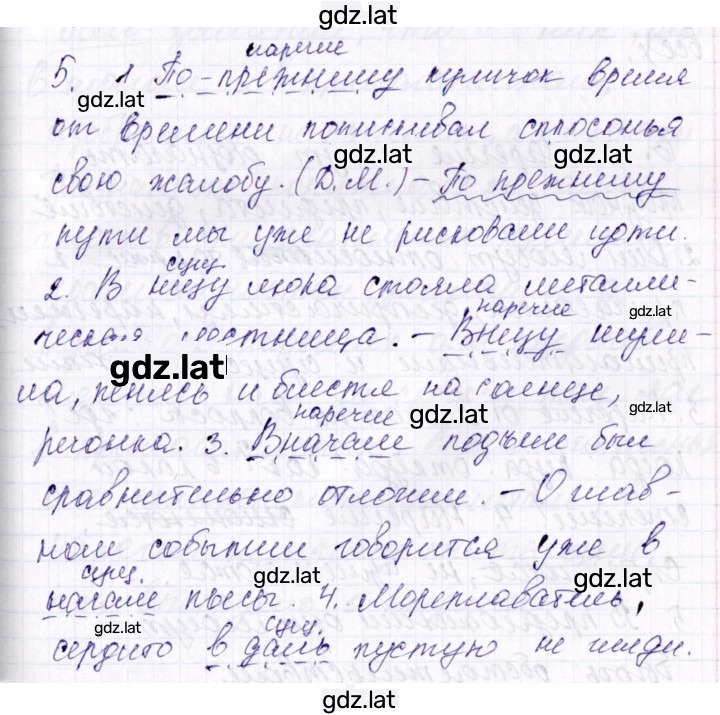 gdz.lat
наречие
5. 1. По-прежнему куличок время
gdz.lat
от времени попискивал спросонья
gdz.lat
свою жалобу. (Д.М.) - По прежнему
пути мы уже не рисковали идти.
сущ.
2. В низу люка стояла металли-
наречие
ческая лестница. - Внизу шуме-
gdz.lat
ла, пенясь и блестя на солнце,
наречие gdz.lat
речонка. 3. Вначале подъем был
сравнительно отлогим. - О глав-
ном событии говорится уже в
сущ. gdz.lat gdz.lat
начале пьесы. 4. Мореплаватель,
gdz.lat сущ.
сердито в даль пустую не гляди.
gdz.lat